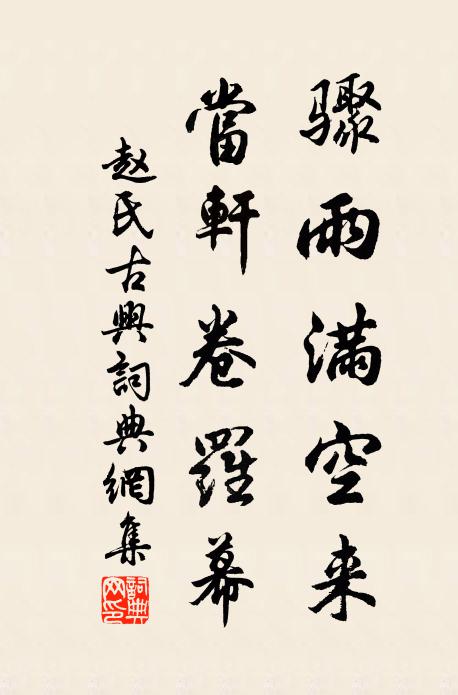 骤雨满空来
當軒卷羅幕
赵氏古興詞典網集
詞典网印